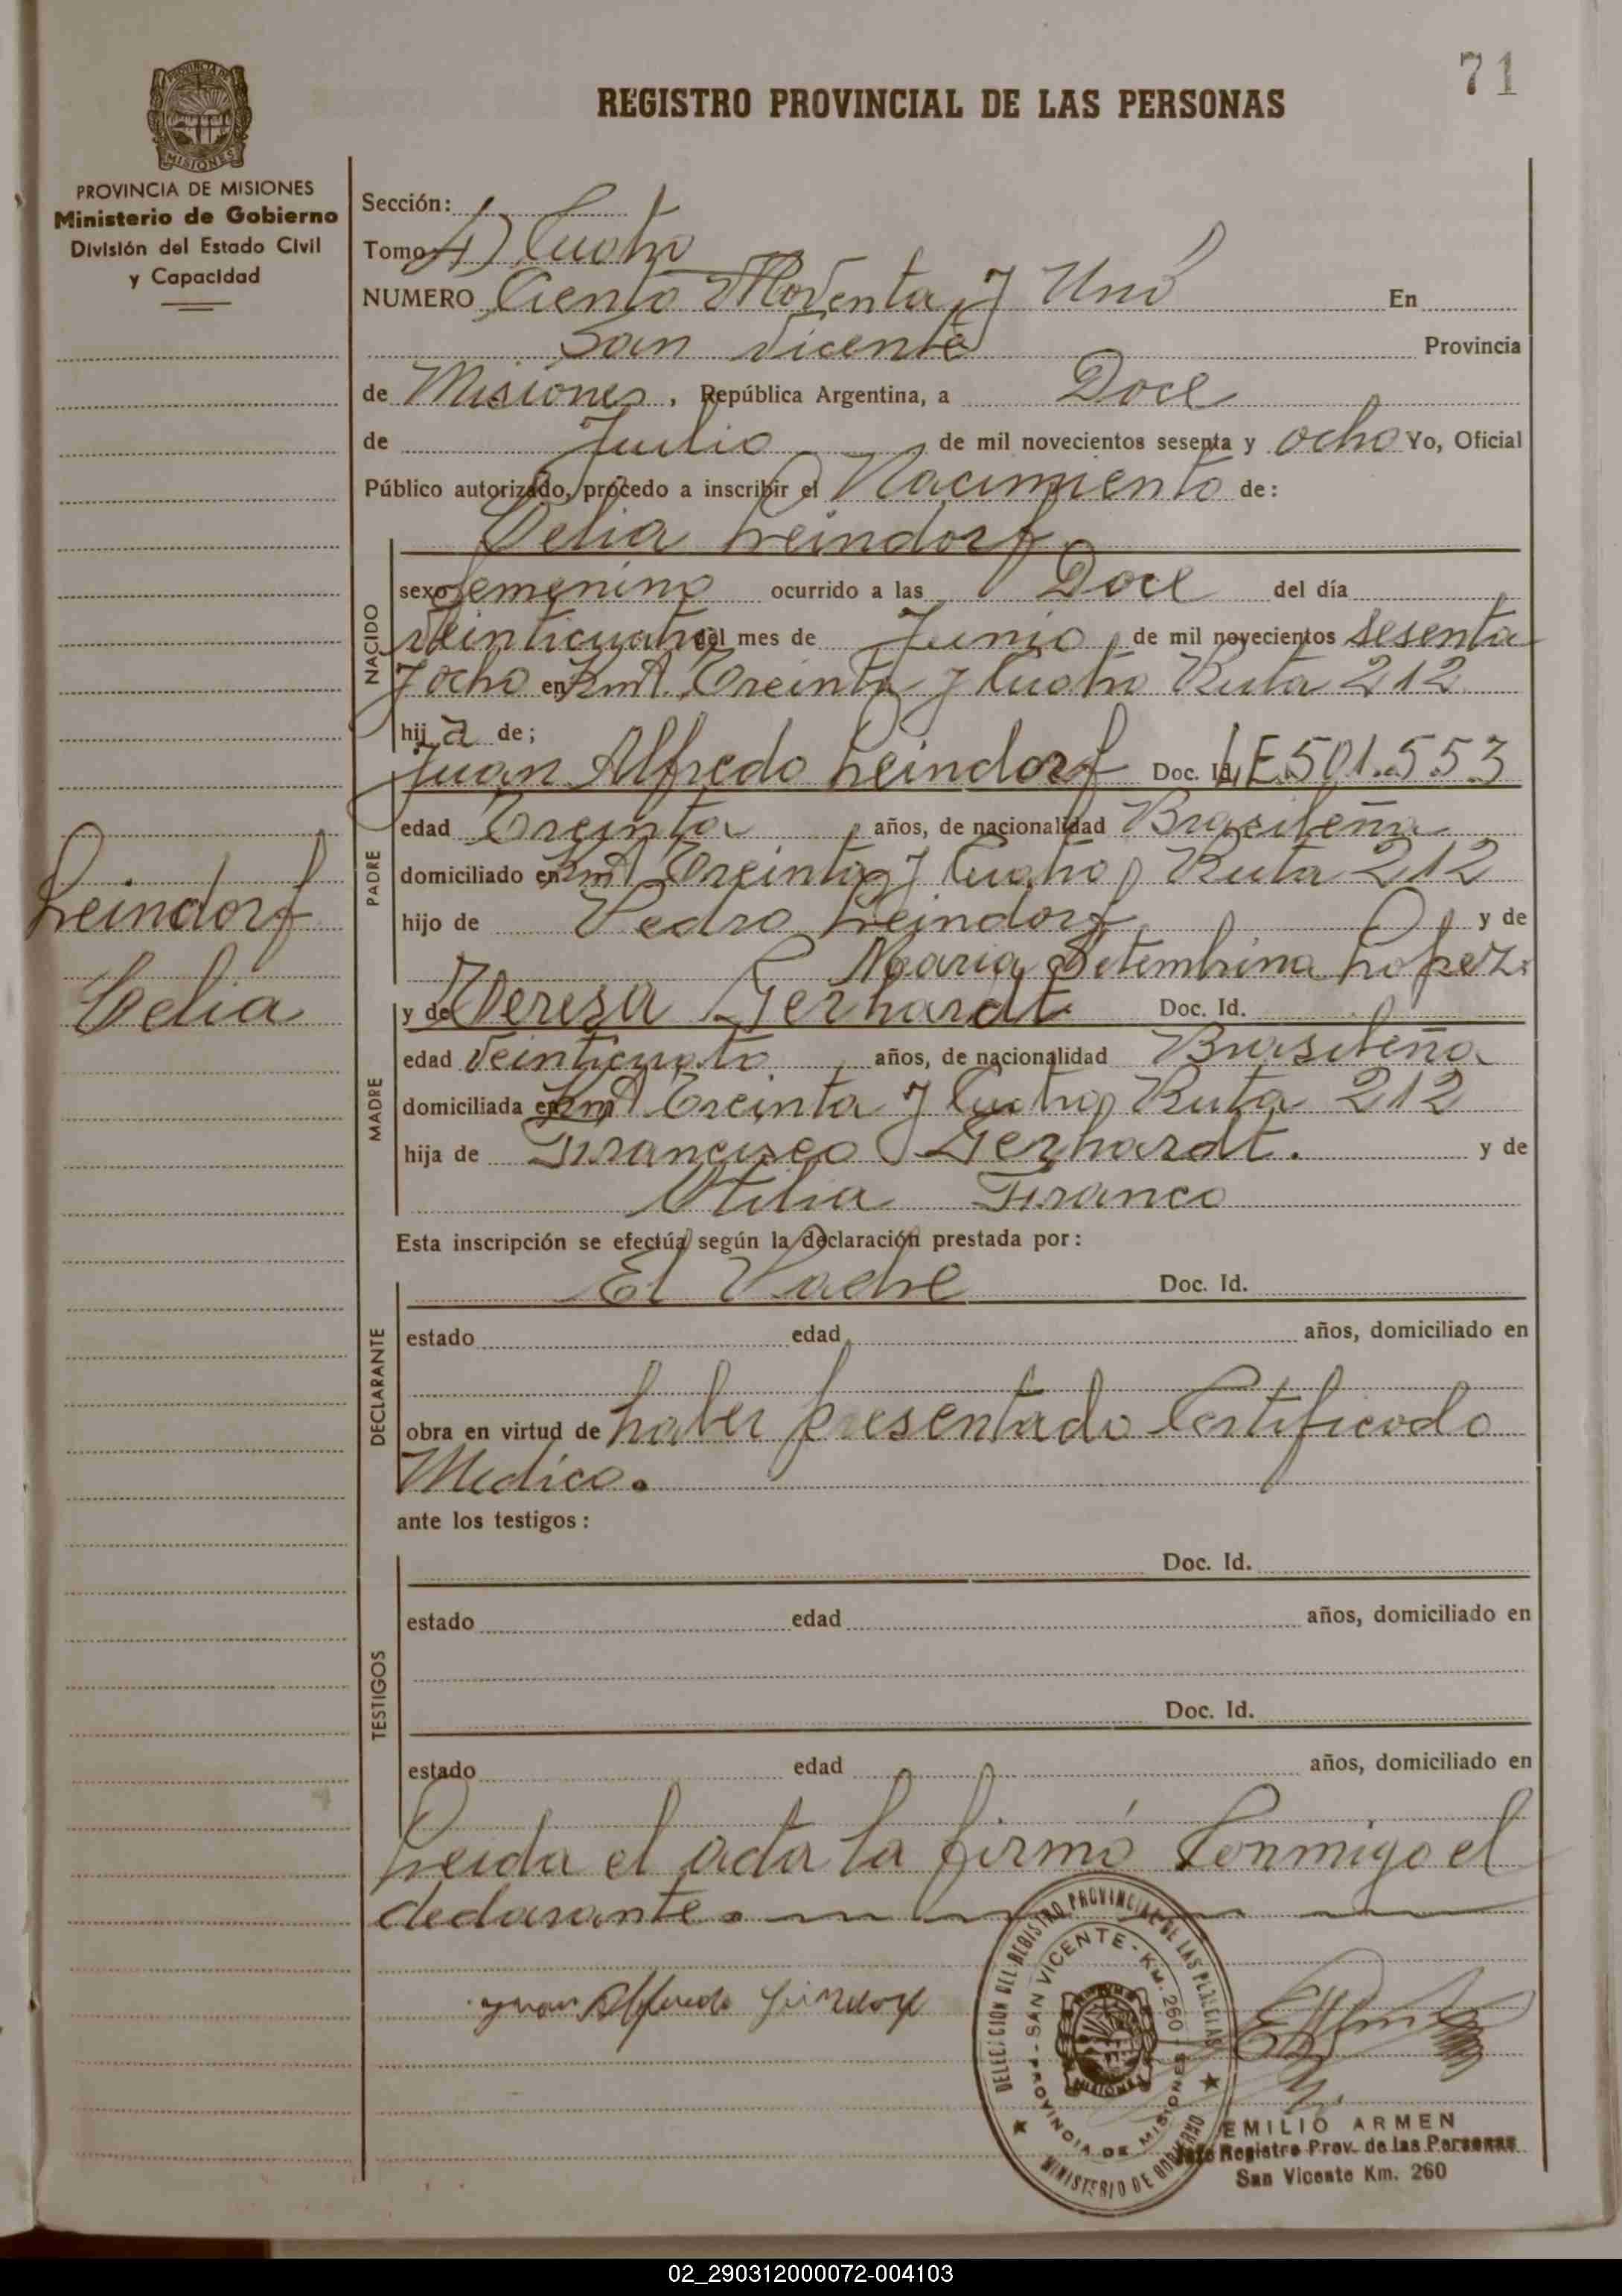 71
REGISTRO PROVINCIAL DE LAS PERSONAS
PROVINCIA DE MISIONES
Ministerio de Gobierno
División del Estado Civil
y Capacidad
Sección:
Tomo 4) Cuatro
NUMERO Ciento Noventa y Uno En
San Vicente Provincia
de Misiones, República Argentina, a Doce
de Julio de mil novecientos sesenta y ocho Yo, Oficial
Público autorizado, procedo a inscribir el Nacimiento de:
Celia Leindorf
NACIDO
sexo femenino ocurrido a las Doce del día
Veinticuatro del mes de Junio de mil novecientos sesenta
y ocho en Km Treinta y Cuatro Ruta 212
hij a de;
Juan Alfredo Leindorf Doc. Id. L.E. 501.553
PADRE
edad Treinta años, de nacionalidad Brasileña
domiciliado en Km Treinta y Cuatro Ruta 212
hijo de Pedro Leindorf y de
Maria Setembrina Lopez.
Leindorf
Celia
MADRE
y de Teresa Gerhardt Doc. Id.
edad Veinticuatro años, de nacionalidad Brasileña
domiciliada en Km Treinta y Cuatro Ruta 212
hija de Francisco Gerhardt. y de
Otilia Franco
Esta inscripción se efectúa según la declaración prestada por:
DECLARANTE
El Padre Doc. Id.
estado edad años, domiciliado en
obra en virtud de haber presentado Certificado
Medico.
ante los testigos:
TESTIGOS
Doc. Id.
estado edad años, domiciliado en
Doc. Id.
estado edad años, domiciliado en
Leida el acta la firmó Conmigo el
declarante.
Juan Alfredo Leindorf
DELEGACION DEL REGISTRO PROVINCIAL DE LAS PERSONAS
SAN VICENTE - KM. 260
PROVINCIA DE MISIONES
MINISTERIO DE GOBIERNO
EMILIO ARMEN
Jefe Registro Prov. de las Personas
San Vicente Km. 260
02_290312000072-004103